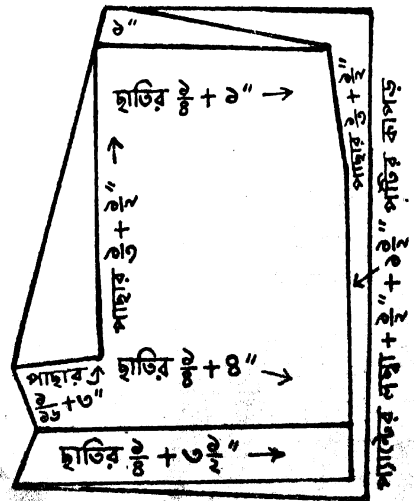 ১"
ছাতির ১/৪ + ১" →
পাছার ১/৩ + ১/২"
পাছার ১/৩ + ১/২" →
লম্বা + ১/২" + ১ ১/২" কাপড়
পাছার
১/১৬+৩"
ছাতির ১/৪ + ৪" →
ছাতির ১/৪ + ৩ ১/২" →